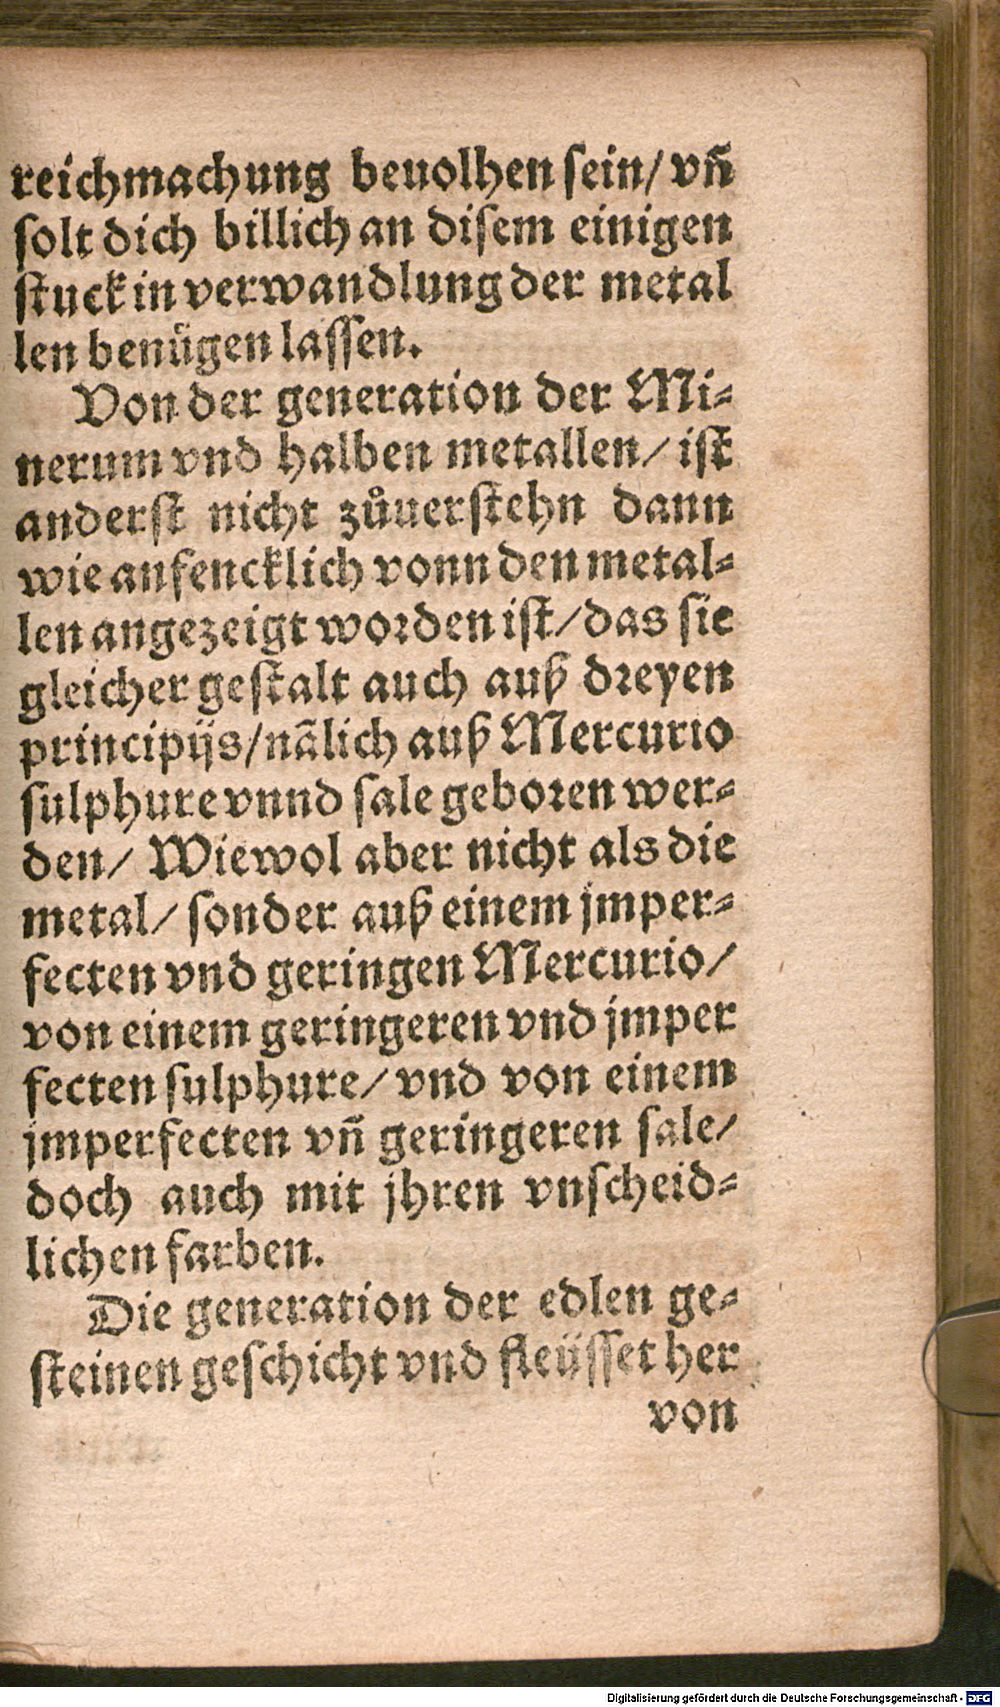 reichmachung beuolhen sein/ vñ
solt dich billich an disem einigen
stuck in verwandlung der metal
len benügen lassen.
Von der generation der Mi⸗
nerum vnd halben metallen/ ist
anderst nicht zůuerstehn dann
wie anfencklich vonn den metal⸗
len angezeigt worden ist/ das sie
gleicher gestalt auch auß dreyen
principijs/ nãlich auß Mercurio
sulphure vnnd sale geboren wer⸗
den/ Wiewol aber nicht als die
metal/ sonder auß einem jmper⸗
fecten vnd geringen Mercurio/
von einem geringeren vnd jmper
fecten sulphure/ vnd von einem
jmperfecten vñ geringeren sale/
doch auch mit jhren vnscheid⸗
lichen farben.
Die generation der edlen ge⸗
steinen geschicht vnd fleüsset her
von
Digitalisierung gefördert durch die Deutsche Forschungsgemeinschaft - DFG